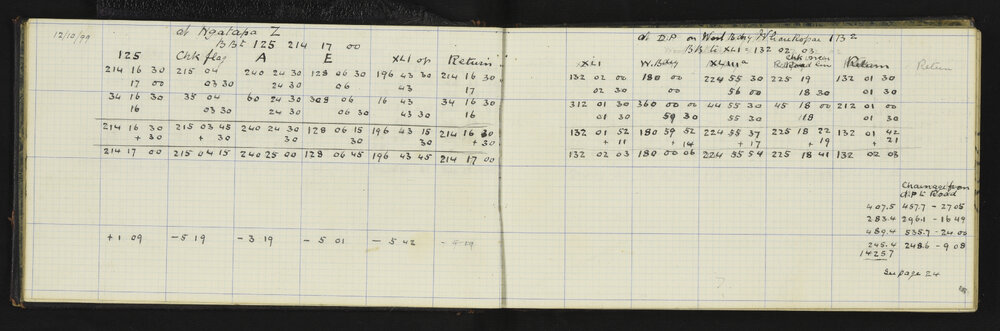 12/10/99
at Ngatapa Z
BB: 125 214 17 00
125 Chk flag A E XLI op Return
214 16 30 215 04 240 24 30 128 06 30 196 43 30 214 16 30
17 00 03 30 24 30 06 43 17
34 16 30 35 04 60 24 30 308 06 16 43 34 16 30
16 03 30 24 30 06 30 43 30 16
214 16 30 215 03 45 240 24 30 128 06 15 196 43 15 214 16 30
+ 30 + 30 30 30 30 + 30
214 17 00 215 04 15 240 25 00 128 06 45 196 43 45 214 17 00
+ 1 09 - 5 19 - 3 19 - 5 01 - 5 42
at D.P. on West Bdy 1 B 2
BB to XLI = 132 02 03
XLI W. Bdry XLIIIa Road line Return Return
132 02 00 180 00 224 55 30 225 19 132 01 30
02 30 00 56 00 18 30 01 30
312 01 30 360 00 00 44 55 30 45 18 00 212 01 00
01 30 59 30 55 30 18 01 30
132 01 52 180 59 52 224 55 37 225 18 22 132 01 42
+ 11 + 14 + 17 + 19 + 21
132 02 03 180 00 06 224 55 54 225 18 41 132 02 03
Chainage from
D.P. Road
407.5 457.7 - 27 05
283.4 296.1 - 16 49
489.4 535.7 - 24 00
245.4 248.6 - 9 08
1425 7
See page 24